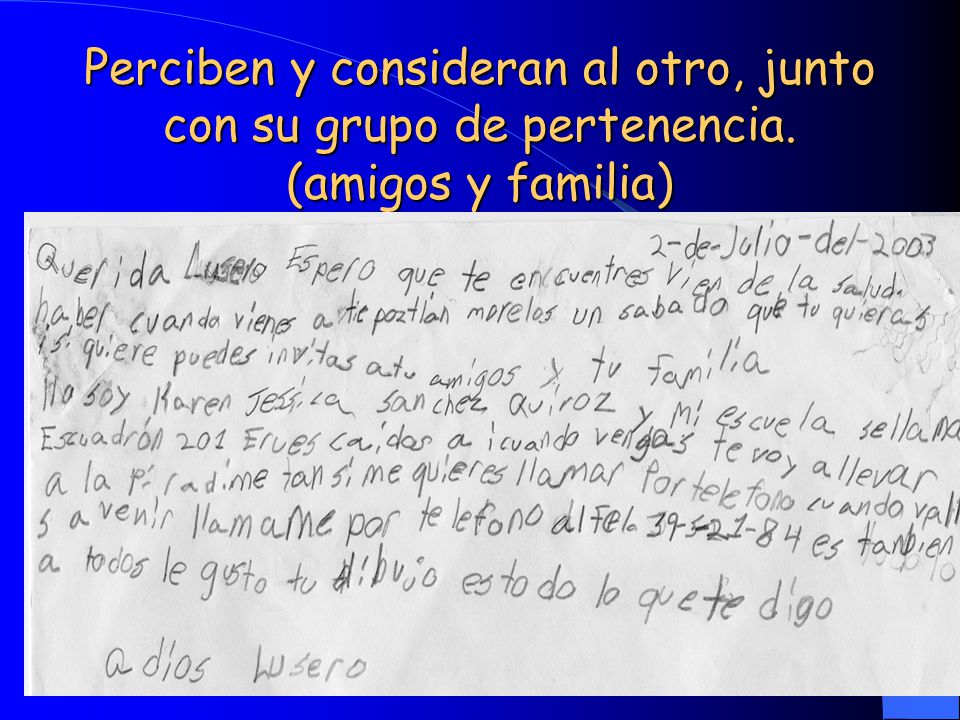 Perciben y consideran al otro, junto
con su grupo de pertenencia.
(amigos y familia)
2-de-Julio-del-2003
Querida Lusero Espero que te encuentres vien de la salud.
haber cuando vienes a tepoztlán morelos un sabado que tu quieras
i si quiere puedes invitas a tu amigos y tu familia
llo soy Karen Jessica sanchez Quiroz y mi escuela se llama
Escuadrón 201 Erues caidos a i cuando vengas te voy a llevar
a la Piradime tan si me quieres llamar Por telefono cuando vall
s a venir llamame por telefono al Tel. 39-5-21-84 es tanbien
a todos le gusto tu dibujo es todo lo que te digo
adios Lusero